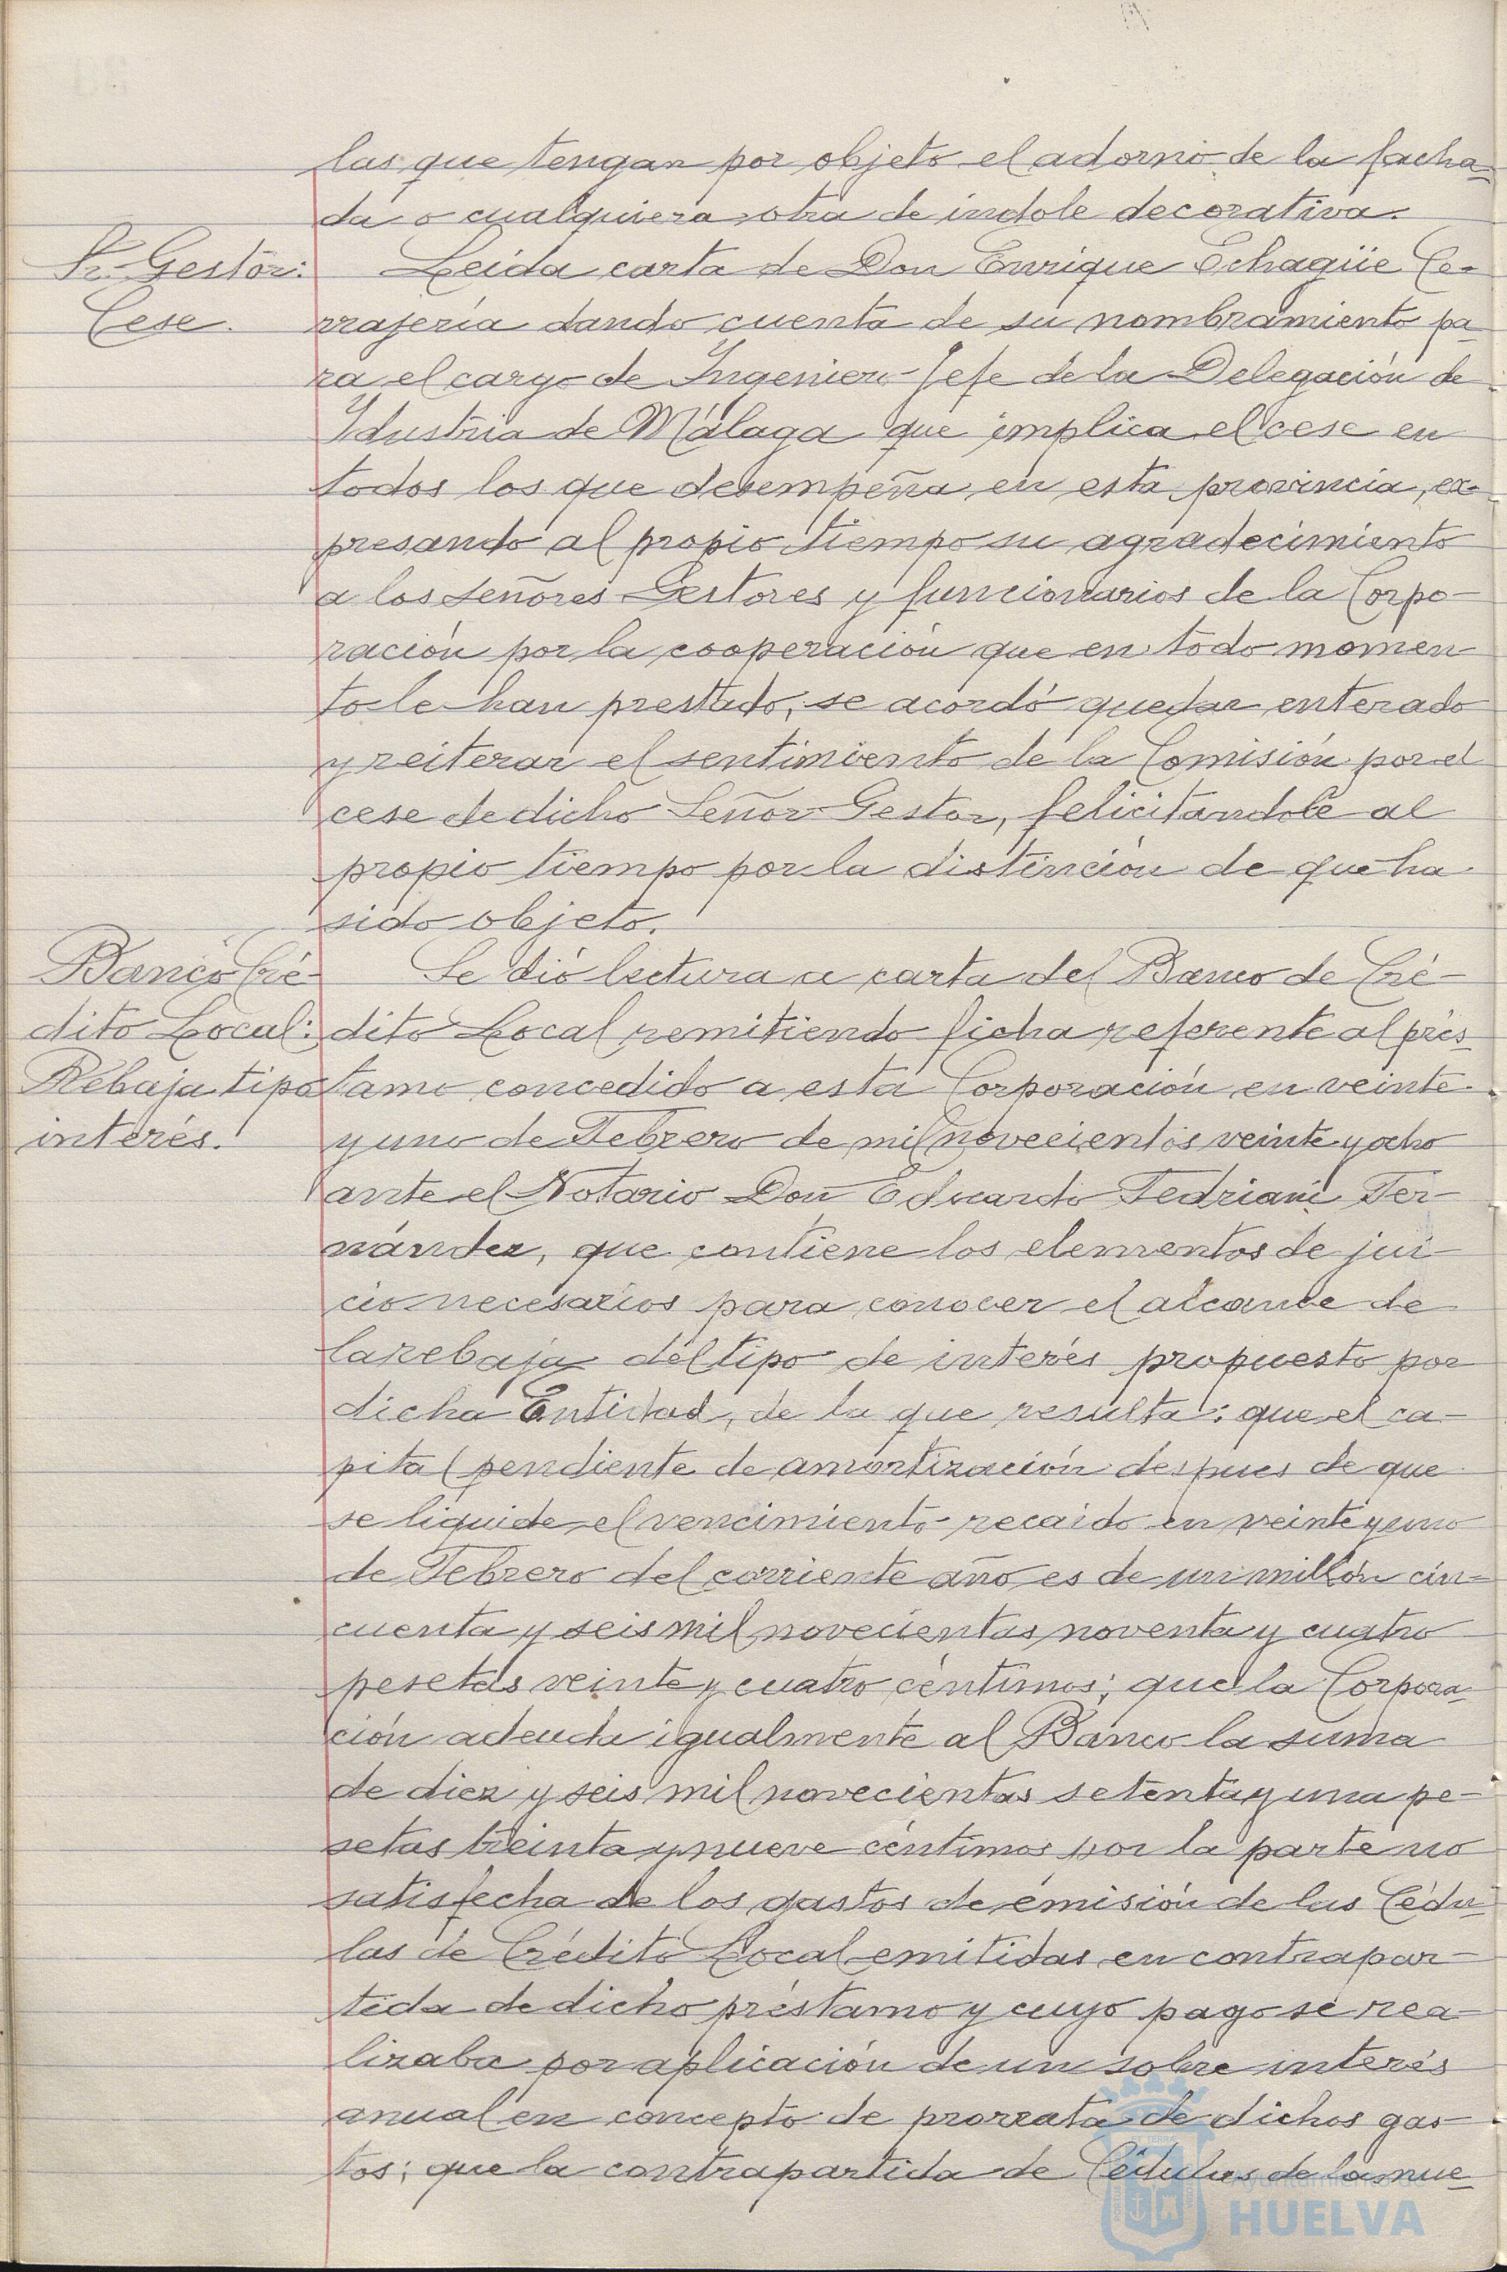 las que tengan por objeto el adorno de la facha-
da o cualquiera otra de índole decorativa.
Sr. Gestor:
Cese.
Leida carta de Don Enrique Echagüie Ce-
rrajería dando cuenta de su nombramiento pa-
ra el cargo de Ingeniero-Jefe de la Delegación de
Idustria de Málaga que implica el cese en
todos los que desempeña en esta provincia, ex-
presando al propio tiempo su agradecimiento
a los señores Gestores y funcionarios de la Corpo-
ración por la cooperación que en todo momen-
to le han prestado, se acordó quedar enterado
y reiterar el sentimiento de la Comisión por el
cese de dicho Señor Gestor, felicitandole al
propio tiempo por la distinción de que ha
sido objeto.
Banco Cré-
dito Local:
Rebaja tipo
interés.
Se dió lectura a carta del Banco de Cré-
dito Local remitiendo ficha referente al prés-
tamo concedido a esta Corporación en veinte
y uno de Febrero de mil novecientos veinte y ocho
ante el Notario Don Eduardo Fedriani Fer-
nández, que contiene los elementos de jui-
cio necesarios para conocer el alcance de
la rebaja del tipo de interés propuesto por
dicha Entidad, de la que resulta: que el ca-
pital pendiente de amortización despues de que
se liquide el vencimiento recaido en veinte y uno
de Febrero del corriente año es de un millón cin-
cuenta y seis mil novecientas noventa y cuatro
pesetas veinte y cuatro céntimos; que la Corpora-
ción adeuda igualmente al Banco la suma
de diez y seis mil novecientas setenta y una pe-
setas treinta y nueve céntimos por la parte no
satisfecha de los gastos de emisión de las Cédu-
las de Crédito Local emitidas en contrapar-
tida de dicho préstamo y cuyo pago se rea-
lizaba por aplicación de un sobre interés
anual en concepto de prorrata de dichos gas-
tos; que la contrapartida de Cédulas de la nue-
Ayuntamiento de
HUELVA